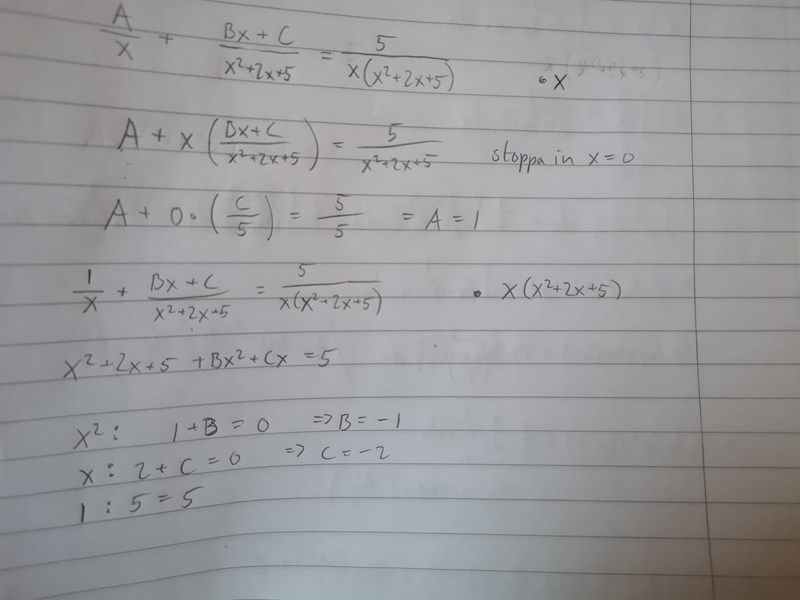 A/x + (Bx + C)/(x²+2x+5) = 5/(x(x²+2x+5)) • x
A + x((Bx+C)/(x²+2x+5)) = 5/(x²+2x+5) stoppa in x = 0
A + 0•(C/5) = 5/5 = A = 1
1/x + (Bx + C)/(x²+2x+5) = 5/(x(x²+2x+5)) • x(x²+2x+5)
x²+2x+5 +Bx²+Cx = 5
x²: 1+B = 0 => B = -1
x: 2 + C = 0 => C = -2
1 : 5 = 5